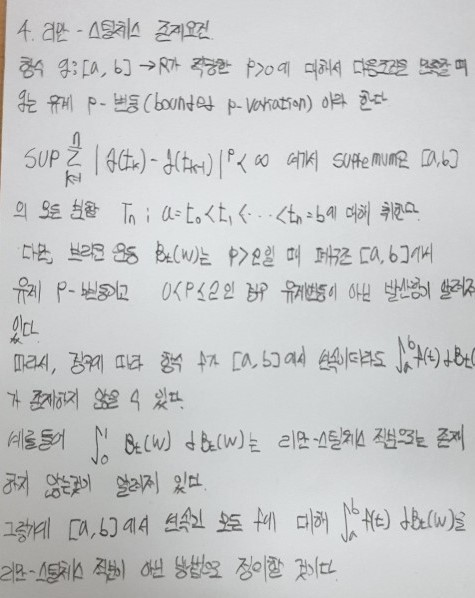 4. 리만-스틸체스 존재요건
함수 g:[a, b]→R가 적당한 P>0에 대해서 다음조건을 만족할 때
g는 유계 p-변동(bounded p-variation) 이라 한다
SUP Σ_{k=1}^{n} |g(t_k)-g(t_{k-1})|^p < ∞ 여기서 supremum은 [a,b]
의 모든 분할 Tn : a=t_0<t_1<···<t_n=b에 대해 취한다.
다만, 브라운 운동 B_t(w)는 P>2일 때 폐구간 [a,b]에서
유계 P-변동이고 0<P≤2인 경우 유계변동이 아닌 발산함이 알려져
있다.
따라서, 경우에 따라 함수 f가 [a,b]에서 연속이더라도 ∫_a^b f(t) dB_t(
가 존재하지 않을 수 있다.
예를들어 ∫_0^1 B_t(w) dB_t(w)는 리만-스틸체스 적분으로는 존재
하지 않는것이 알려져 있다.
그렇기에 [a,b]에서 연속인 모든 f에 대해 ∫_a^b f(t) dB_t(w)을
리만-스틸체스 적분이 아닌 방법으로 정의할 것이다.